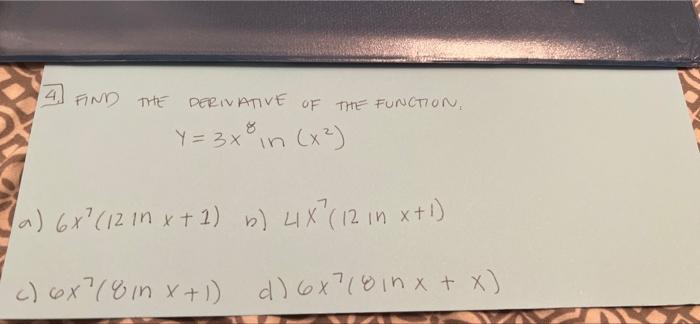 4. FIND THE DERIVATIVE OF THE FUNCTION.
Y = 3x⁸ ln (x²)
a) 6x⁷(12 ln x + 1) b) 4x⁷(12 ln x+1)
c) 6x⁷(8 ln x + 1) d) 6x⁷(8 ln x + x)